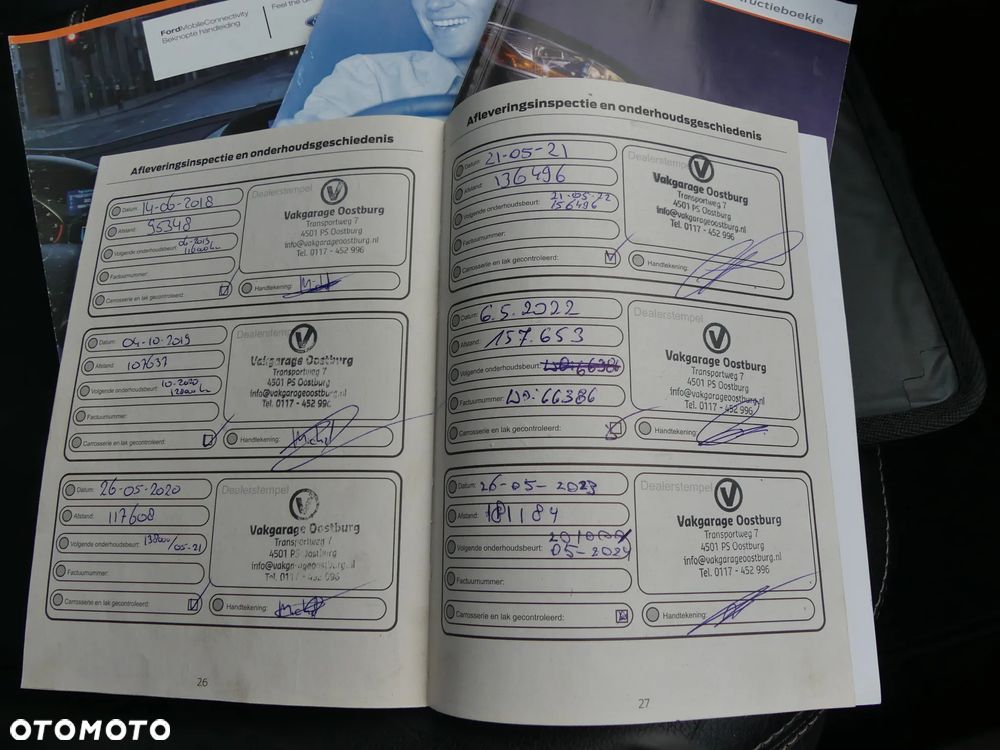 FordMobileConnectivity
Beknopte handleiding
Feel the
ructieboekje
Afleveringsinspectie en onderhoudsgeschiedenis
Datum: 14-06-2018
Afstand: 95348
Volgende onderhoudsbeurt:
Factuurnummer:
Carrosserie en lak gecontroleerd:
Dealerstempel
Vakgarage Oostburg
Transportweg 7
4501 PS Oostburg
info@vakgarageoostburg.nl
Tel. 0117 - 452 996
Handtekening:
Datum: 04-10-2019
Afstand: 107637
Volgende onderhoudsbeurt: 10-2020
Factuurnummer:
Carrosserie en lak gecontroleerd:
Dealerstempel
Vakgarage Oostburg
Transportweg 7
4501 PS Oostburg
info@vakgarageoostburg.nl
Tel. 0117 - 452 996
Handtekening:
Datum: 26-05-2020
Afstand: 117608
Volgende onderhoudsbeurt: 138000/05-21
Factuurnummer:
Carrosserie en lak gecontroleerd:
Dealerstempel
Vakgarage Oostburg
Transportweg 7
4501 PS Oostburg
info@vakgarageoostburg.nl
Tel. 0117 - 452 996
Handtekening:
26
Afleveringsinspectie en onderhoudsgeschiedenis
Datum: 21-05-21
Afstand: 136496
Volgende onderhoudsbeurt: 21-05-22
156496
Factuurnummer:
Carrosserie en lak gecontroleerd:
Dealerstempel
Vakgarage Oostburg
Transportweg 7
4501 PS Oostburg
info@vakgarageoostburg.nl
Tel. 0117 - 452 996
Handtekening:
Datum: 6.5.2022
Afstand: 157.653
Volgende onderhoudsbeurt:
Factuurnummer: WO: 66386
Carrosserie en lak gecontroleerd:
Dealerstempel
Vakgarage Oostburg
Transportweg 7
4501 PS Oostburg
info@vakgarageoostburg.nl
Tel. 0117 - 452 996
Handtekening:
Datum: 26-05-2023
Afstand: 181184
Volgende onderhoudsbeurt:
05-2024
Factuurnummer:
Carrosserie en lak gecontroleerd:
Dealerstempel
Vakgarage Oostburg
Transportweg 7
4501 PS Oostburg
info@vakgarageoostburg.nl
Tel. 0117 - 452 996
Handtekening:
27
OTOMOTO